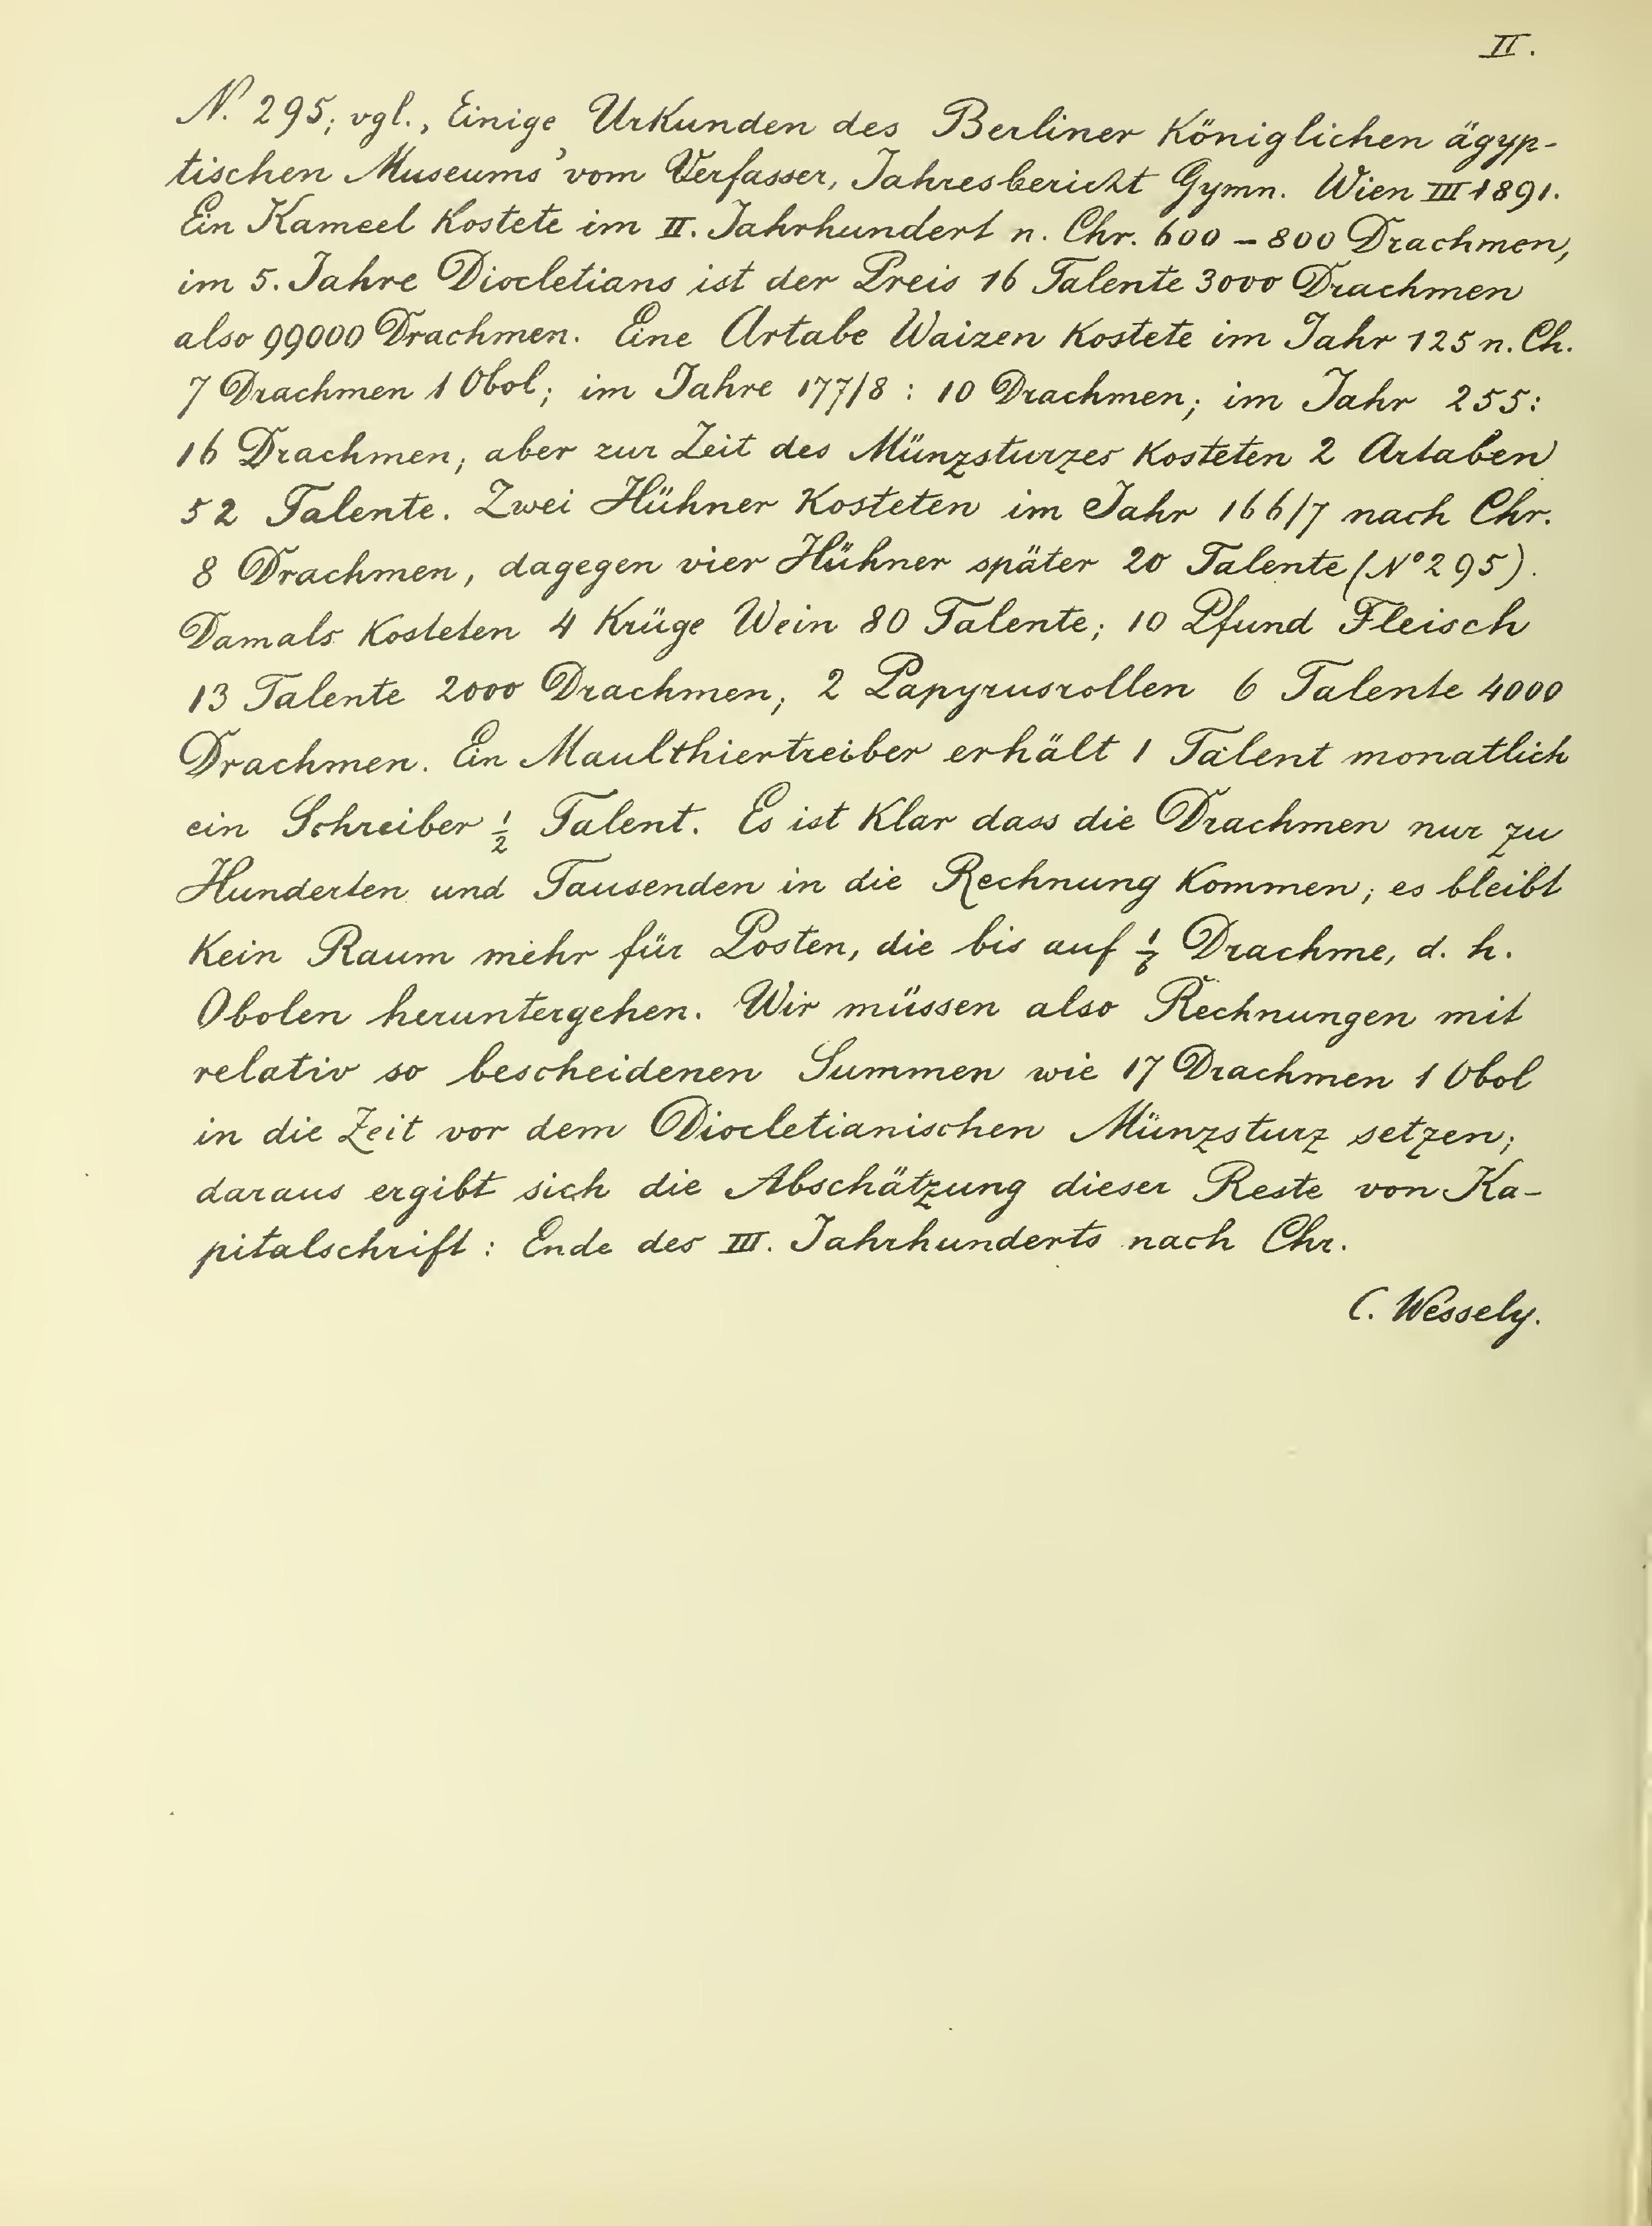 II.
N. 295; vgl., Einige Urkunden des Berliner Königlichen ägyp-
tischen Museums' vom Verfasser, Jahresbericht Gymn. Wien III 1891.
Ein Kameel kostete im II. Jahrhundert n. Chr. 600 – 800 Drachmen,
im 5. Jahre Diocletians ist der Preis 16 Talente 3000 Drachmen
also 99000 Drachmen. Eine Artabe Waizen kostete im Jahr 125 n. Ch.
7 Drachmen 1 Obol; im Jahre 177/8 : 10 Drachmen; im Jahr 255:
16 Drachmen, aber zur Zeit des Münzsturzes kosteten 2 Artaben
52 Talente. Zwei Hühner kosteten im Jahr 166/7 nach Chr.
8 Drachmen, dagegen vier Hühner später 20 Talente (N° 295).
Damals kosteten 4 Krüge Wein 80 Talente; 10 Pfund Fleisch
13 Talente 2000 Drachmen, 2 Papyrusrollen 6 Talente 4000
Drachmen. Ein Maulthiertreiber erhält 1 Talent monatlich
ein Schreiber ½ Talent. Es ist klar dass die Drachmen nur zu
Hunderten und Tausenden in die Rechnung kommen; es bleibt
kein Raum mehr für Posten, die bis auf ⅙ Drachme, d. h.
Obolen heruntergehen. Wir müssen also Rechnungen mit
relativ so bescheidenen Summen wie 17 Drachmen 1 Obol
in die Zeit vor dem Diocletianischen Münzsturz setzen;
daraus ergibt sich die Abschätzung dieser Reste von Ka-
pitalschrift : Ende des III. Jahrhunderts nach Chr.
C. Wessely.